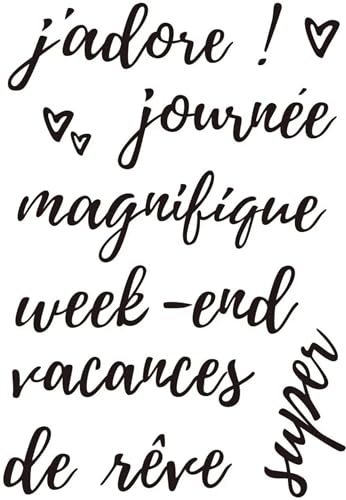 j'adore !
journée
magnifique
week-end
vacances
de rêve
super